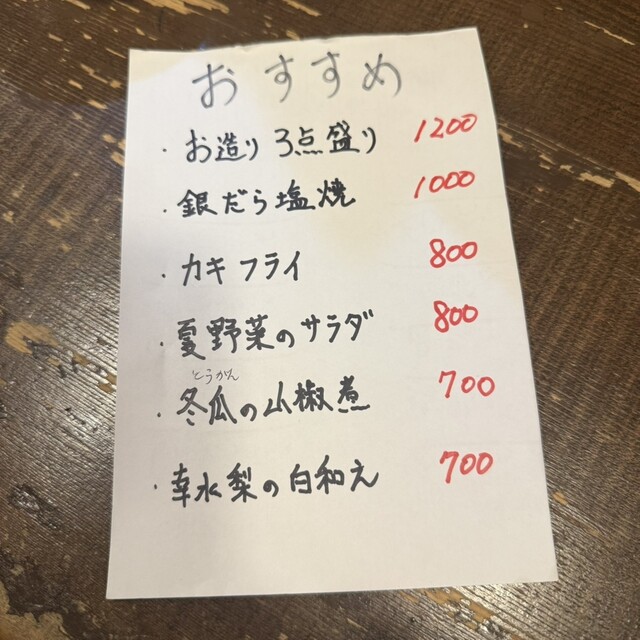 おすすめ
・お造り3点盛り 1200
・銀だら塩焼 1000
・カキフライ 800
・夏野菜のサラダ 800
とうがん
・冬瓜の山椒煮 700
・幸水梨の白和え 700